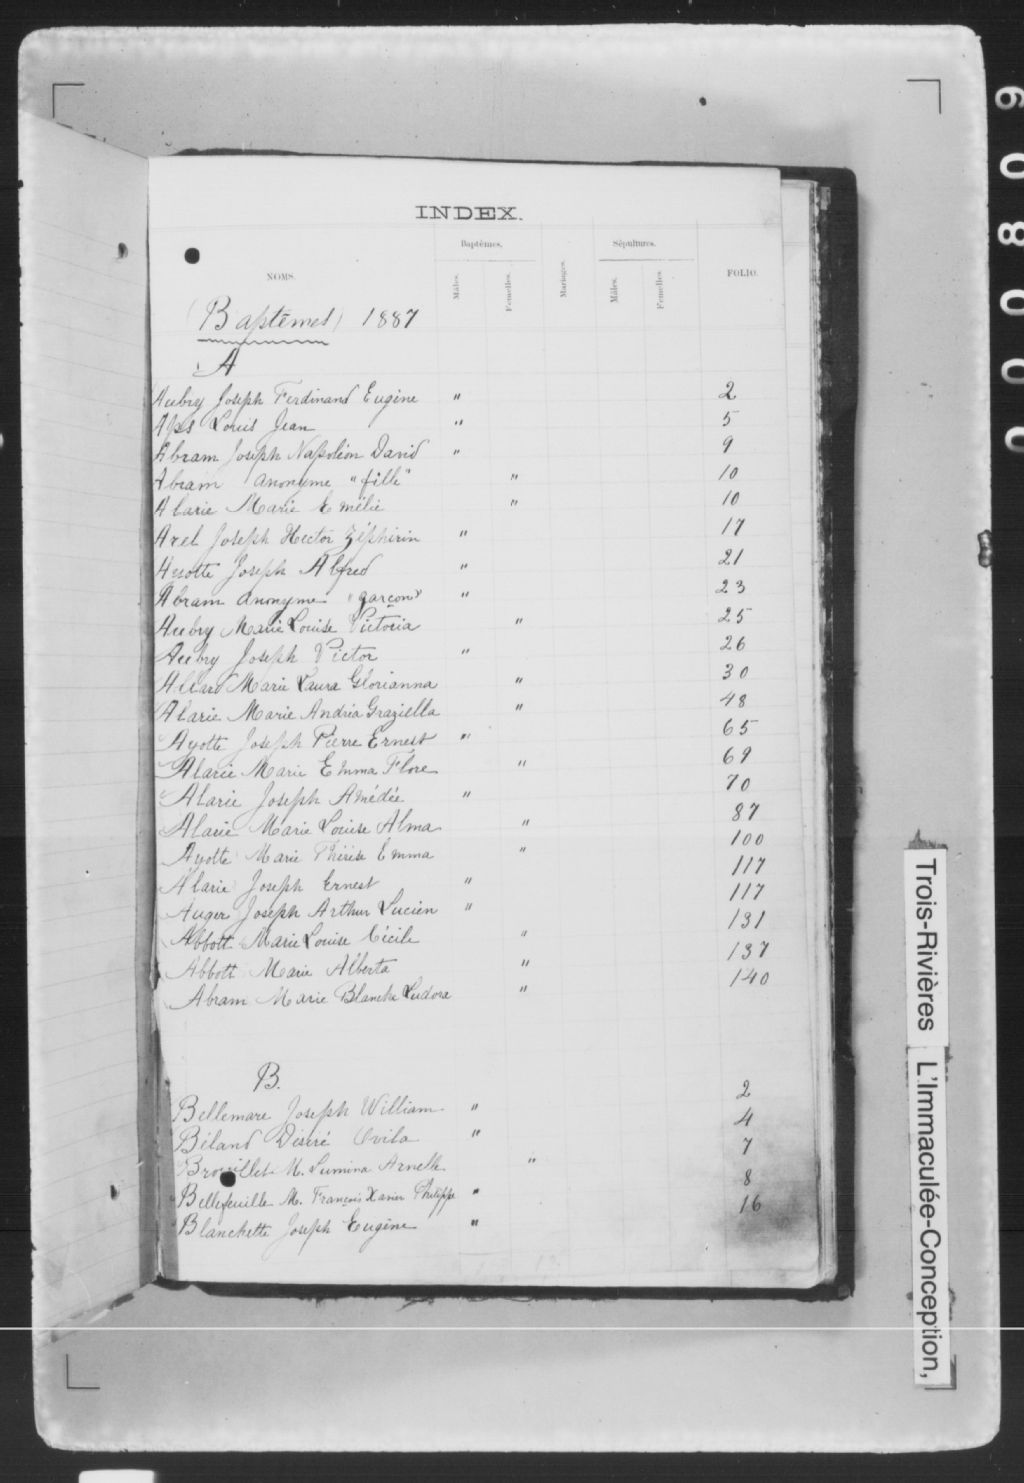 INDEX.
NOMS.
Baptêmes.
Mâles.
Femelles.
Mariages.
Sépultures.
Mâles.
Femelles.
FOLIO.
Baptêmes 1887
A
Aubry Joseph Ferdinand Eugène " 2
Louis Jean " 5
Abram Joseph Napoléon David " 9
Abram anonyme "fille" " 10
Alarie Marie Emélie " 10
Arel Joseph Hector Zéphirin " 17
Joseph Alfred " 21
Abram anonyme "garçon" " 23
Aubry Marie Louise Victoria " 25
Aubry Joseph Victor " 26
Allard Marie Laura Glorianna " 30
Alarie Marie Andréa Graziella " 48
Ayotte Joseph Pierre Ernest " 65
Alarie Marie Emma Flore " 69
Alarie Joseph Amédée " 70
Alarie Marie Louise Alma " 87
Ayotte Marie Thérèse Emma " 100
Alarie Joseph Ernest " 117
Auger Joseph Arthur Lucien " 117
Abbott Marie Louise Cécile " 131
Abbott Marie Alberta " 137
Abram Marie Blanche Ludora " 140
B.
Bellemare Joseph William " 2
Béland Désiré Ovila " 4
Brouillet M. " 7
Bellefeuille M. François Xavier Philippe " 8
Blanchette Joseph Eugène " 16
Trois-Rivières L'Immaculée-Conception,
00809